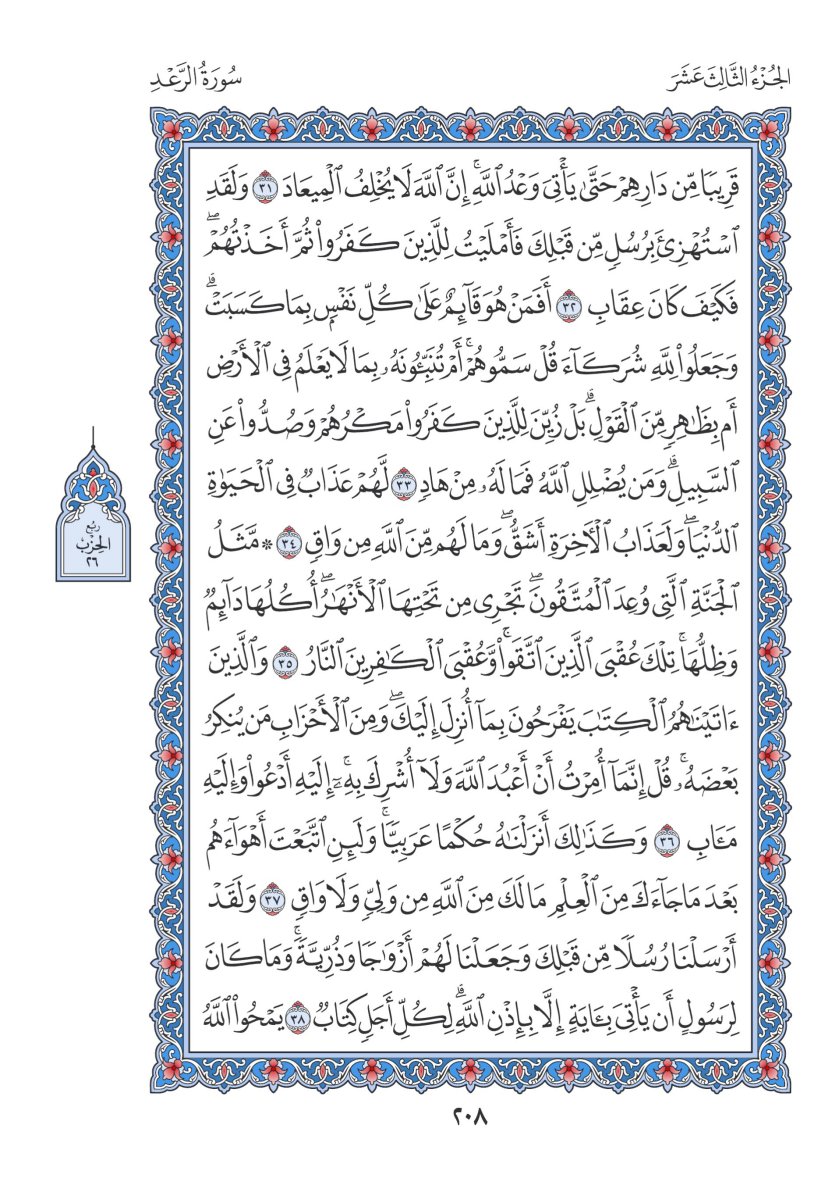 الجُزْءُ الثَّالِثَ عَشَرَ
سُورَةُ الرَّعْدِ
قَرِيبٗا مِّن دَارِهِمۡ حَتَّىٰ يَأۡتِيَ وَعۡدُ ٱللَّهِۚ إِنَّ ٱللَّهَ لَا يُخۡلِفُ ٱلۡمِيعَادَ ٣١ وَلَقَدِ
ٱسۡتُهۡزِئَ بِرُسُلٖ مِّن قَبۡلِكَ فَأَمۡلَيۡتُ لِلَّذِينَ كَفَرُواْ ثُمَّ أَخَذۡتُهُمۡۖ
فَكَيۡفَ كَانَ عِقَابِ ٣٢ أَفَمَنۡ هُوَ قَآئِمٌ عَلَىٰ كُلِّ نَفۡسِۭ بِمَا كَسَبَتۡۗ
وَجَعَلُواْ لِلَّهِ شُرَكَآءَ قُلۡ سَمُّوهُمۡۚ أَمۡ تُنَبِّـُٔونَهُۥ بِمَا لَا يَعۡلَمُ فِي ٱلۡأَرۡضِ
أَم بِظَٰهِرٖ مِّنَ ٱلۡقَوۡلِۗ بَلۡ زُيِّنَ لِلَّذِينَ كَفَرُواْ مَكۡرُهُمۡ وَصُدُّواْ عَنِ
ٱلسَّبِيلِۗ وَمَن يُضۡلِلِ ٱللَّهُ فَمَا لَهُۥ مِنۡ هَادٖ ٣٣ لَّهُمۡ عَذَابٞ فِي ٱلۡحَيَوٰةِ
ٱلدُّنۡيَاۖ وَلَعَذَابُ ٱلۡأٓخِرَةِ أَشَقُّۖ وَمَا لَهُم مِّنَ ٱللَّهِ مِن وَاقٖ ٣٤ ۞ مَّثَلُ
ٱلۡجَنَّةِ ٱلَّتِي وُعِدَ ٱلۡمُتَّقُونَۖ تَجۡرِي مِن تَحۡتِهَا ٱلۡأَنۡهَٰرُۖ أُكُلُهَا دَآئِمٞ
وَظِلُّهَاۚ تِلۡكَ عُقۡبَى ٱلَّذِينَ ٱتَّقَواْۚ وَّعُقۡبَى ٱلۡكَٰفِرِينَ ٱلنَّارُ ٣٥ وَٱلَّذِينَ
ءَاتَيۡنَٰهُمُ ٱلۡكِتَٰبَ يَفۡرَحُونَ بِمَآ أُنزِلَ إِلَيۡكَۖ وَمِنَ ٱلۡأَحۡزَابِ مَن يُنكِرُ
بَعۡضَهُۥۚ قُلۡ إِنَّمَآ أُمِرۡتُ أَنۡ أَعۡبُدَ ٱللَّهَ وَلَآ أُشۡرِكَ بِهِۦٓۚ إِلَيۡهِ أَدۡعُواْ وَإِلَيۡهِ
مَـَٔابِ ٣٦ وَكَذَٰلِكَ أَنزَلۡنَٰهُ حُكۡمًا عَرَبِيّٗاۚ وَلَئِنِ ٱتَّبَعۡتَ أَهۡوَآءَهُم
بَعۡدَ مَا جَآءَكَ مِنَ ٱلۡعِلۡمِ مَا لَكَ مِنَ ٱللَّهِ مِن وَلِيّٖ وَلَا وَاقٖ ٣٧ وَلَقَدۡ
أَرۡسَلۡنَا رُسُلٗا مِّن قَبۡلِكَ وَجَعَلۡنَا لَهُمۡ أَزۡوَٰجٗا وَذُرِّيَّةٗۚ وَمَا كَانَ
لِرَسُولٍ أَن يَأۡتِيَ بِـَٔايَةٍ إِلَّا بِإِذۡنِ ٱللَّهِۗ لِكُلِّ أَجَلٖ كِتَابٞ ٣٨ يَمۡحُواْ ٱللَّهُ
رُبْع
الحِزْب
٢٦
٢٠٨